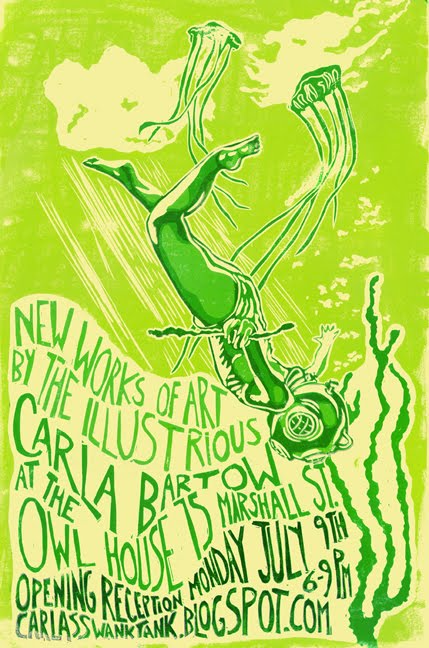 NEW WORKS OF ART
BY THE ILLUSTRIOUS
CARLA BARTOW
AT THE
OWL HOUSE 75 MARSHALL ST.
OPENING RECEPTION MONDAY JULY 9TH
6-9 PM
CARLASSWANKTANK.BLOGSPOT.COM